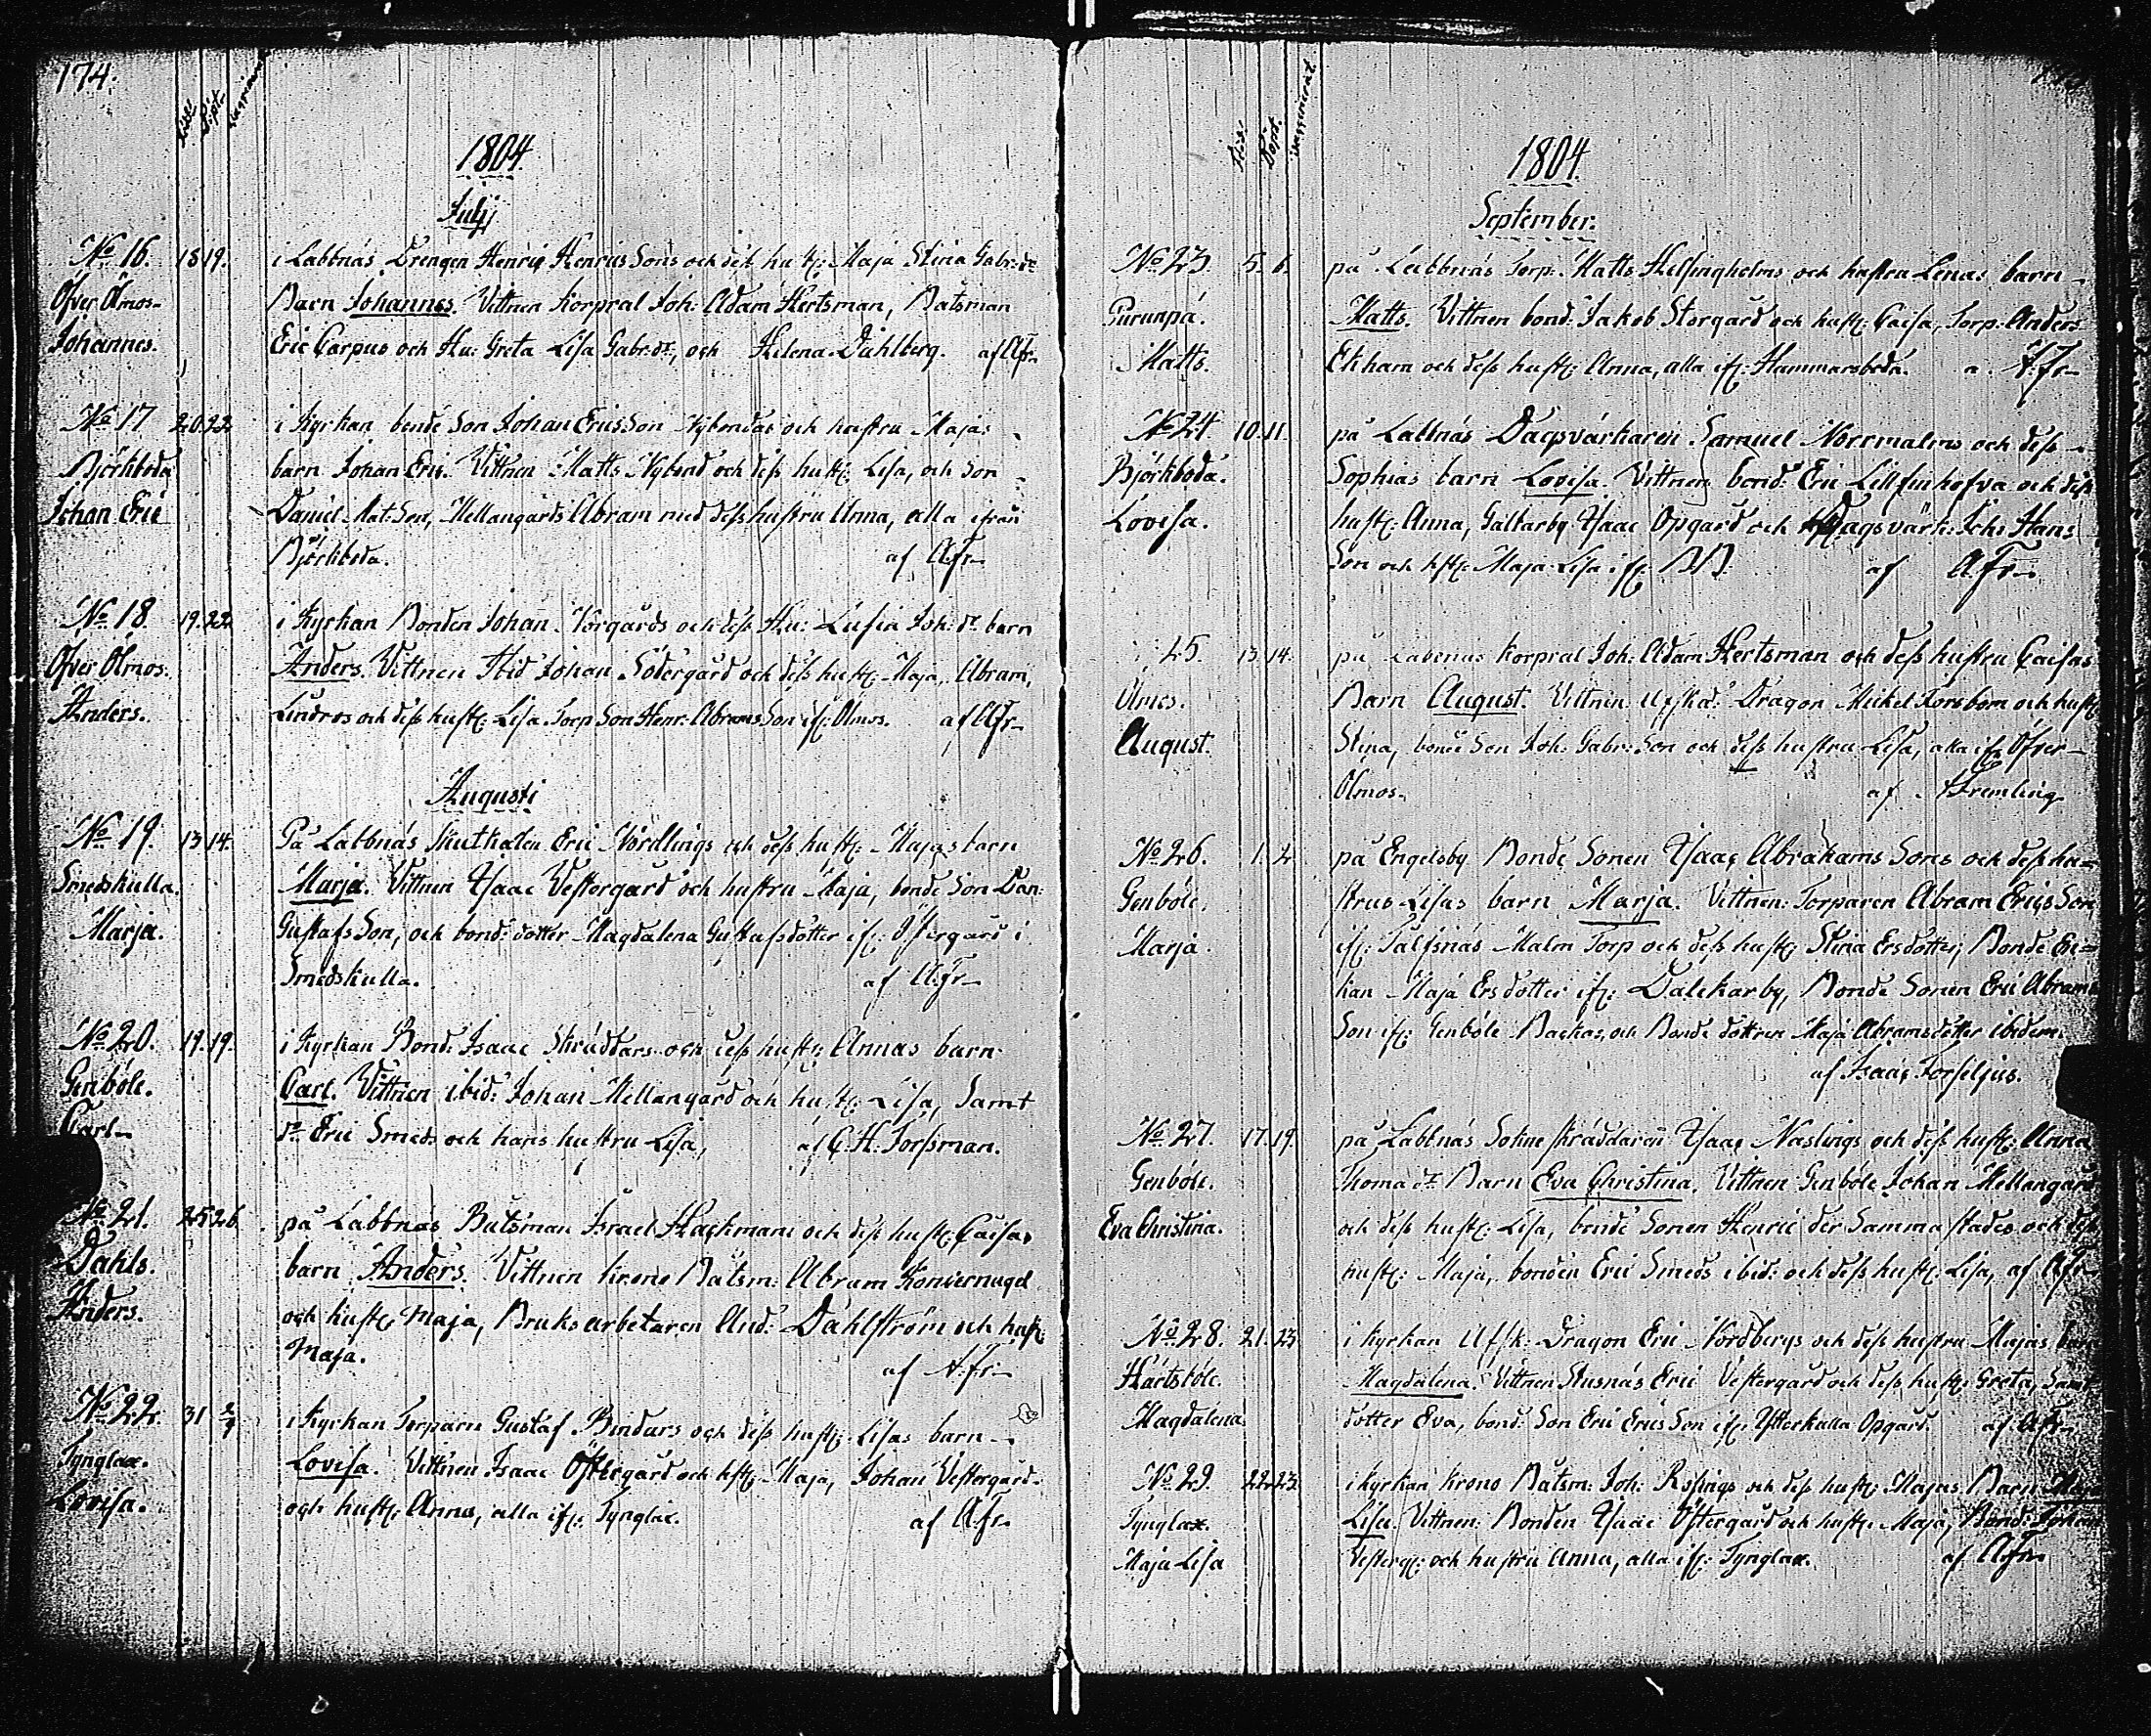 174.
1804.
Julij
No 16. 18 19. i Labbnäs Drengen Henric Henrics Sons och deß hustr: Maja Stina Gabr: dr
Öfver Ölmos. Barn Johannes. Vittnen Korpral Joh: Adam Hertsman, Båtsman
Johannes. Eric Carpus och Hu: Greta Lisa Gabr: dr, och Helena Dahlberg. af AFr
No 17 20. 22. i Kyrkan bonde Son Johan Ericsson Nybondas och hustru Majas
Björkboda barn Johan Eric. Vittnen Matts Nybond och deß hustr: Lisa, och Son
Johan Eric Daniel Mat: Son, Mellangårds Abram med deß hustru Anna, alla ifrån
Björkboda. af AFr
No 18 19. 22. i Kyrkan Bonden Johan Norgårds och deß Hu: Lisa Joh: dr barn
Öfver Ölmos. Anders. Vittnen Ibid Johan Södergård och deß hustr: Maja, Abram
Anders. Lindros och deß hustr: Lisa. Torp Son Henr: Abrams Son if: Ölmos. af AFr
Augusti
No 19. 13 14. På Labbnäs Eric Nordlings och deß hustr: Majas barn
Smedskulla. Marja. Vittnen Isaac Vestergård och hustru Maja, bonde Son Dan:
Marja. Gustafs Son, och bond: dotter Magdalena Gustafsdotter if: Östergård i
Smedskulla. af AFr
No 20. 19. 19. i Kyrkan Bond: Isaac Skräddars och deß hustr: Annas barn
Genböle. Carl. Vittnen ibid: Johan Mellangård och hustr: Lisa, Samt
Carl dr Eric Smeds och hans hustru Lisa, af C. H. Forssman.
No 21. 25 26. på Labbnäs Båtsman Israel Hackmans och deß hustr: Caisas
Dahls. barn Anders. Vittnen krono Båtsm: Abram
Anders. och hustr: Maja, Bruks arbetaren And: Dahlström och hustr:
Maja. af A. Fr
No 22. 31 2/9 i Kyrkan Torparn Gustaf Bindars och deß hustr: Lisas barn
Tynglax. Lovisa. Vittnen Isaac Östergård och hustr: Maja, Johan Vestergård
Lovisa. och hustr: Anna, alla if: Tynglax. af A. Fr
1804.
September.
No 23. 5. 6. på Labbnäs Torp: Matts Helsingholms och hustru Lenas barn
Purunpä. Matts. Vittnen bond: Jakob Storgård och hustr: Caisa, Torp: Anders
Matts. Ekham och deß hustr: Anna, alla if: Hammarsboda. a. A. Fr
No 24. 10. 11. på Labbnäs Dagsvärkaren Samuel Norrmalms och deß
Björkboda. Sophias barn Lovisa. Vittnen bond: Eric Lillfinhofva och deß
Lovisa. hustr: Anna, Galtarby Isaac Opgård och Dagsvärk: Joh: Hans
Son och hustr: Maja Lisa if: BB. af A. Fr
25. 13. 14. på Labbnäs Korpral Joh: Adam Hertsman och deß hustru Caisas
Ölmos. Barn August. Vittnen Afsked: Dragon Mickel Forsbom och hustr:
August. Stina, bonde Son Joh: Gabr: Son och deß hustru Lisa, alla if: Öfver
Ölmos. af Fremling
No 26. 1. 2 på Engelsby Bonde Sonen Isaac Abrahams Sons och deß hu=
Genböle. strus Lisas barn Marja. Vittnen: Torparen Abram Erics Son
Marja. if: Malm Torp och deß hustr: Stina Ersdotter, Bonde En=
kan Maja Ersdotter if: Dalskarby, Bonde Sonen Eric Abrams
Son if: Genböle Backas, och Bonde dottren Maja Abramsdotter ibidem.
af Isaac Forselius.
No 27. 17. 19. på Labbnäs Sokne skräddaren Isaac Naslings och deß hustr: Anna
Genböle. Thoma dr Barn Eva Christina. Vittnen Genböle Johan Mellangård
Eva Christina. och deß hustr: Lisa, bonde Sonen Henric der Samma stades och deß
hustr: Maja, bonden Eric Smeds ibid: och deß hustr: Lisa, af AFr
No 28. 21. 23 i kyrkan Afsk: Dragon Eric Nordbergs och deß hustru Majas barn
Hartsböle. Magdalena. Vittnen Stusnäs Eric Vestergård och deß hustr: Greta, Samt
Magdalena dotter Eva, bond: Son Eric Erics Son if: Ytterkulla Opgård. af AFr
No 29. 22. 23. i kyrkan krono Båtsm: Joh: Rosings och deß hustr: Majas Barn Maja
Tynglax. Lisa. Vittnen: Bonden Isaac Östergård och hustr: Maja, Bond: Johan
Maja Lisa Vesterg: och hustru Anna, alla if: Tynglax. af AFr